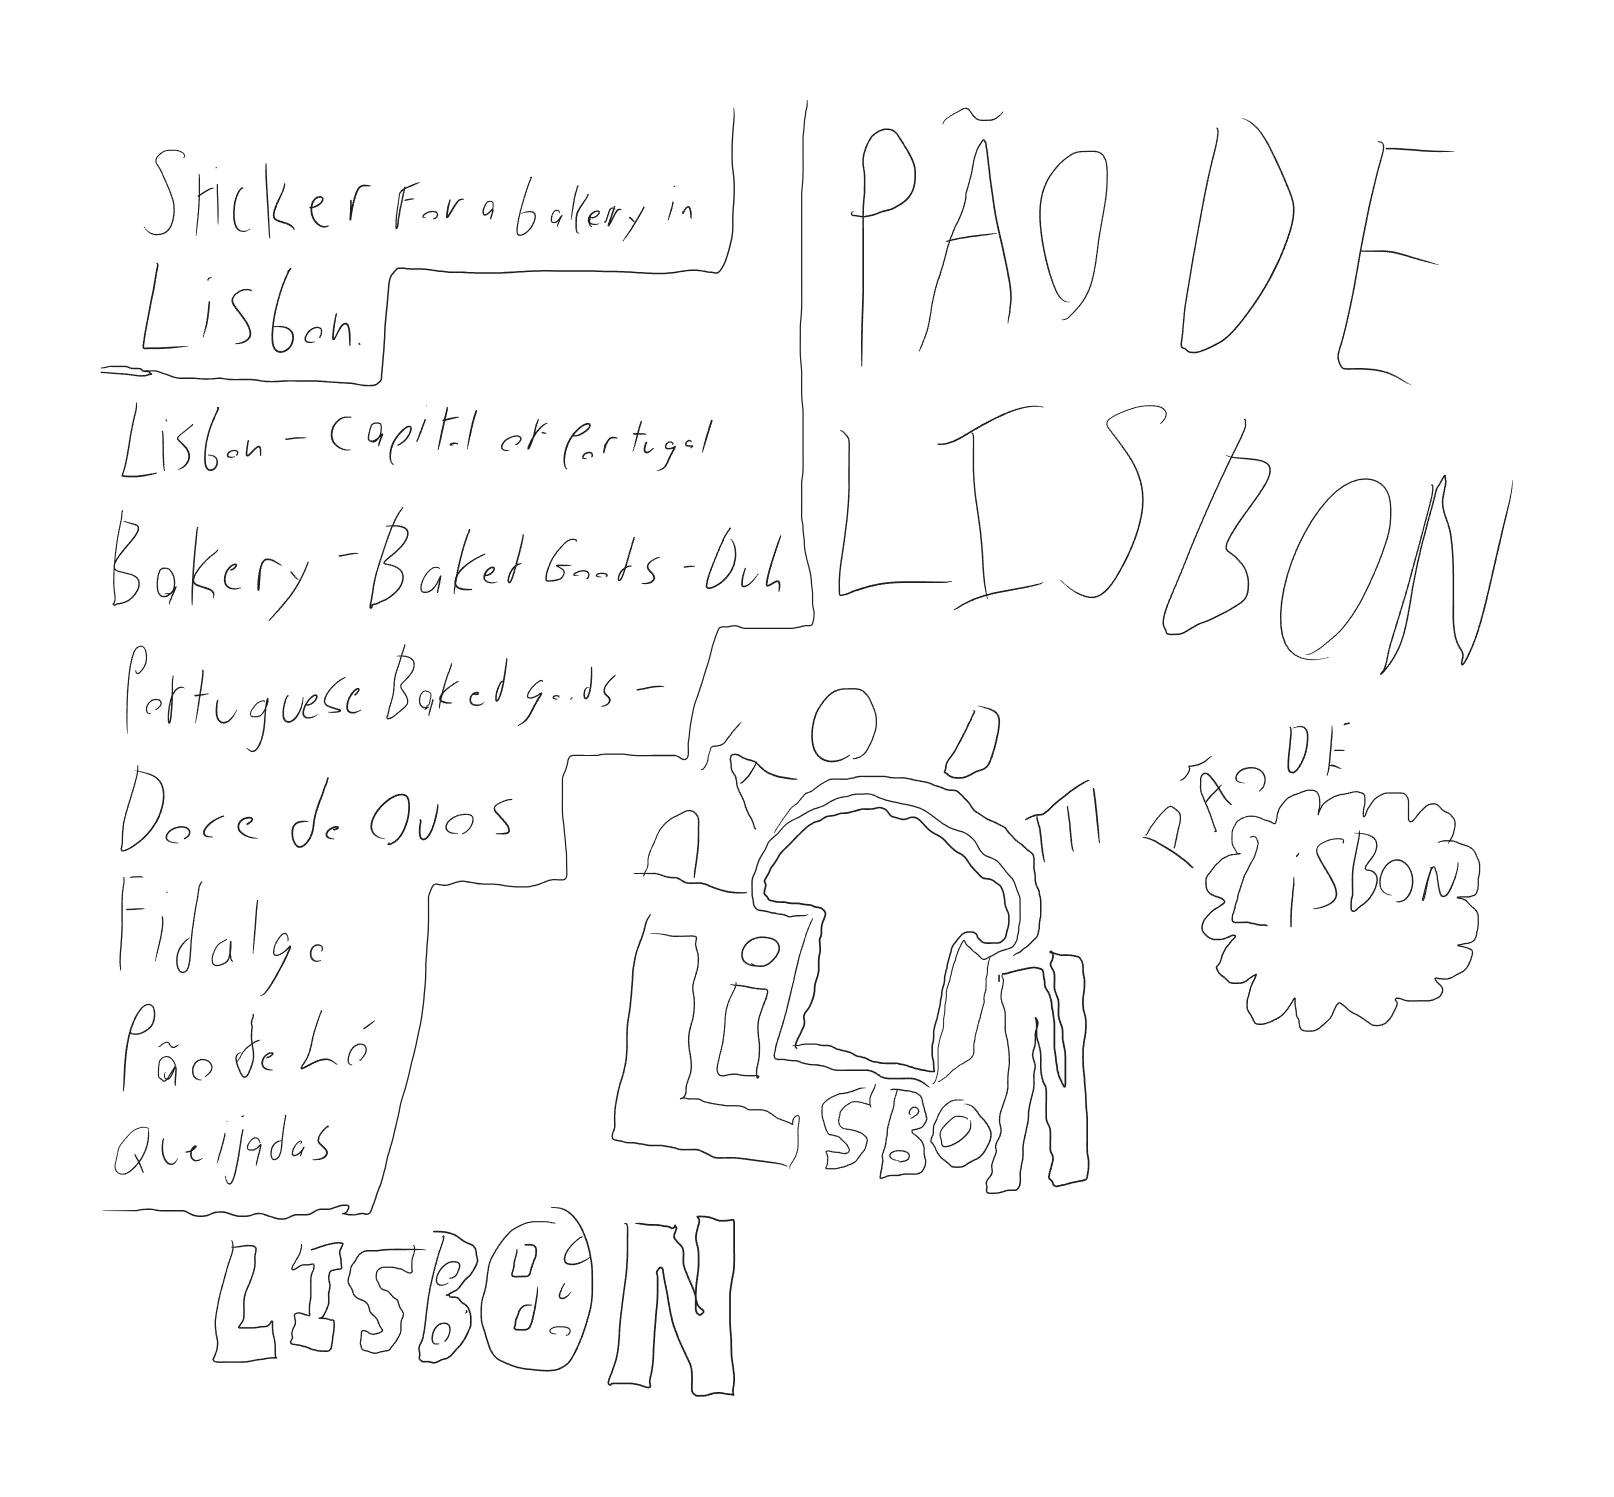 Sticker For a bakery in
Lisbon.
Lisbon - Capital of Portugal
Bakery - Baked Goods - Duh
Portuguese Baked goods -
Doce de Ovos
Fidalgo
Pão de Ló
Queijadas
PÃO DE
LISBON
PÃO DE
LiSBON
PÃO DE
LiSBON
LISBON